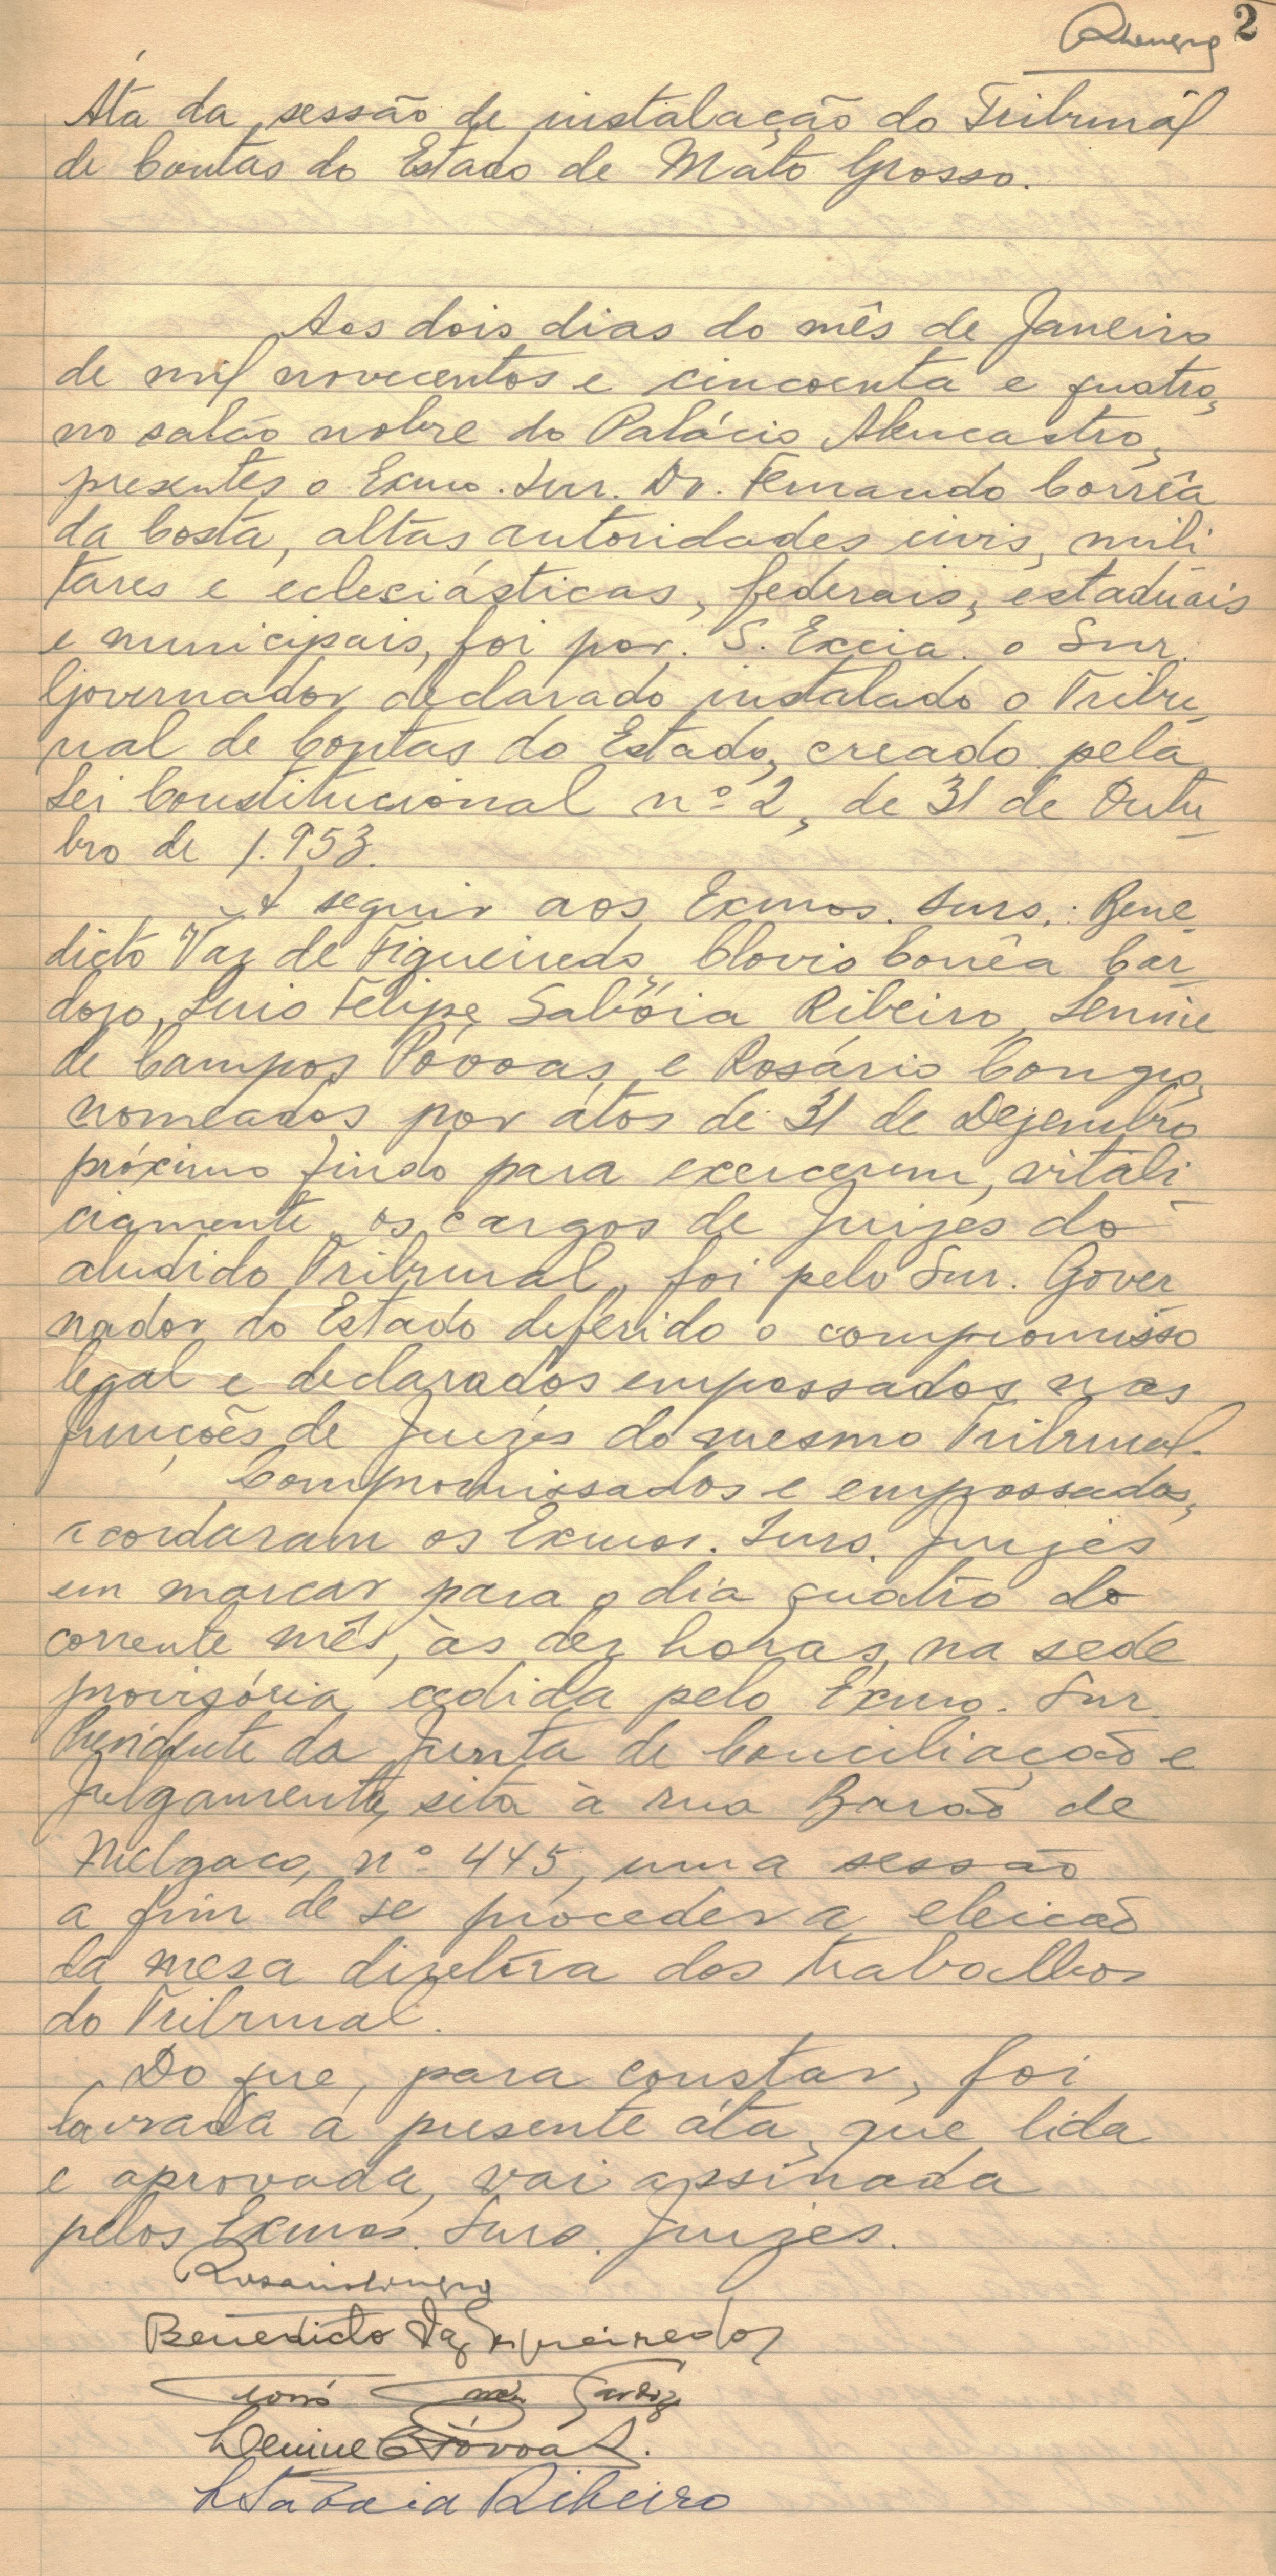 2
Áta da sessão de instalação do Tribunal
de Contas do Estado de Mato Grosso.
Aos dois dias do mês de Janeiro
de mil novecentos e cincoenta e quatro,
no salão nobre do Palácio Alencastro,
presentes o Exmo. Snr. Dr. Fernando Corrêa
da Costa, altas autoridades civis, mili
tares e eclesiásticas, federais, estaduais
e municipais, foi por S. Excia. o Snr.
Governador declarado instalado o Tribu_
nal de Contas do Estado, creado pela
Lei Constitucional nº 2, de 31 de Outu_
bro de 1.953.
A seguir aos Exmos. Snrs.: Bene_
dicto Vaz de Figueiredo, Clovis Corrêa Car_
dozo, Luis Felipe Sabóia Ribeiro, Lenine
de Campos Póvoas e Rosário Congro,
nomeados por átos de 31 de Dezembro
próximo findo para exercerem, vitali_
ciamente, os cargos de Juizes do
aludido Tribunal, foi pelo Snr. Gover_
nador do Estado deferido o compromisso
legal e declarados empossados nas
funções de Juizes do mesmo Tribunal.
Compromissados e empossados,
acordaram os Exmos. Snrs. Juizes
em marcar para o dia quatro do
corrente mês, às dez horas, na sede
provisória cedida pelo Exmo. Snr.
Presidente da Junta de Conciliação e
Julgamento, sita à rua Barão de
Melgaço, nº 445, uma sessão
a fim de se proceder a eleição
da mesa diretora dos trabalhos
do Tribunal.
Do que, para constar, foi
lavrada a presente áta, que lida
e aprovada, vai assinada
pelos Exmos. Snrs. Juizes.
Rosario Congro
Benedicto Vaz Figueiredo
Lenine C Póvoas.
L Saboia Ribeiro